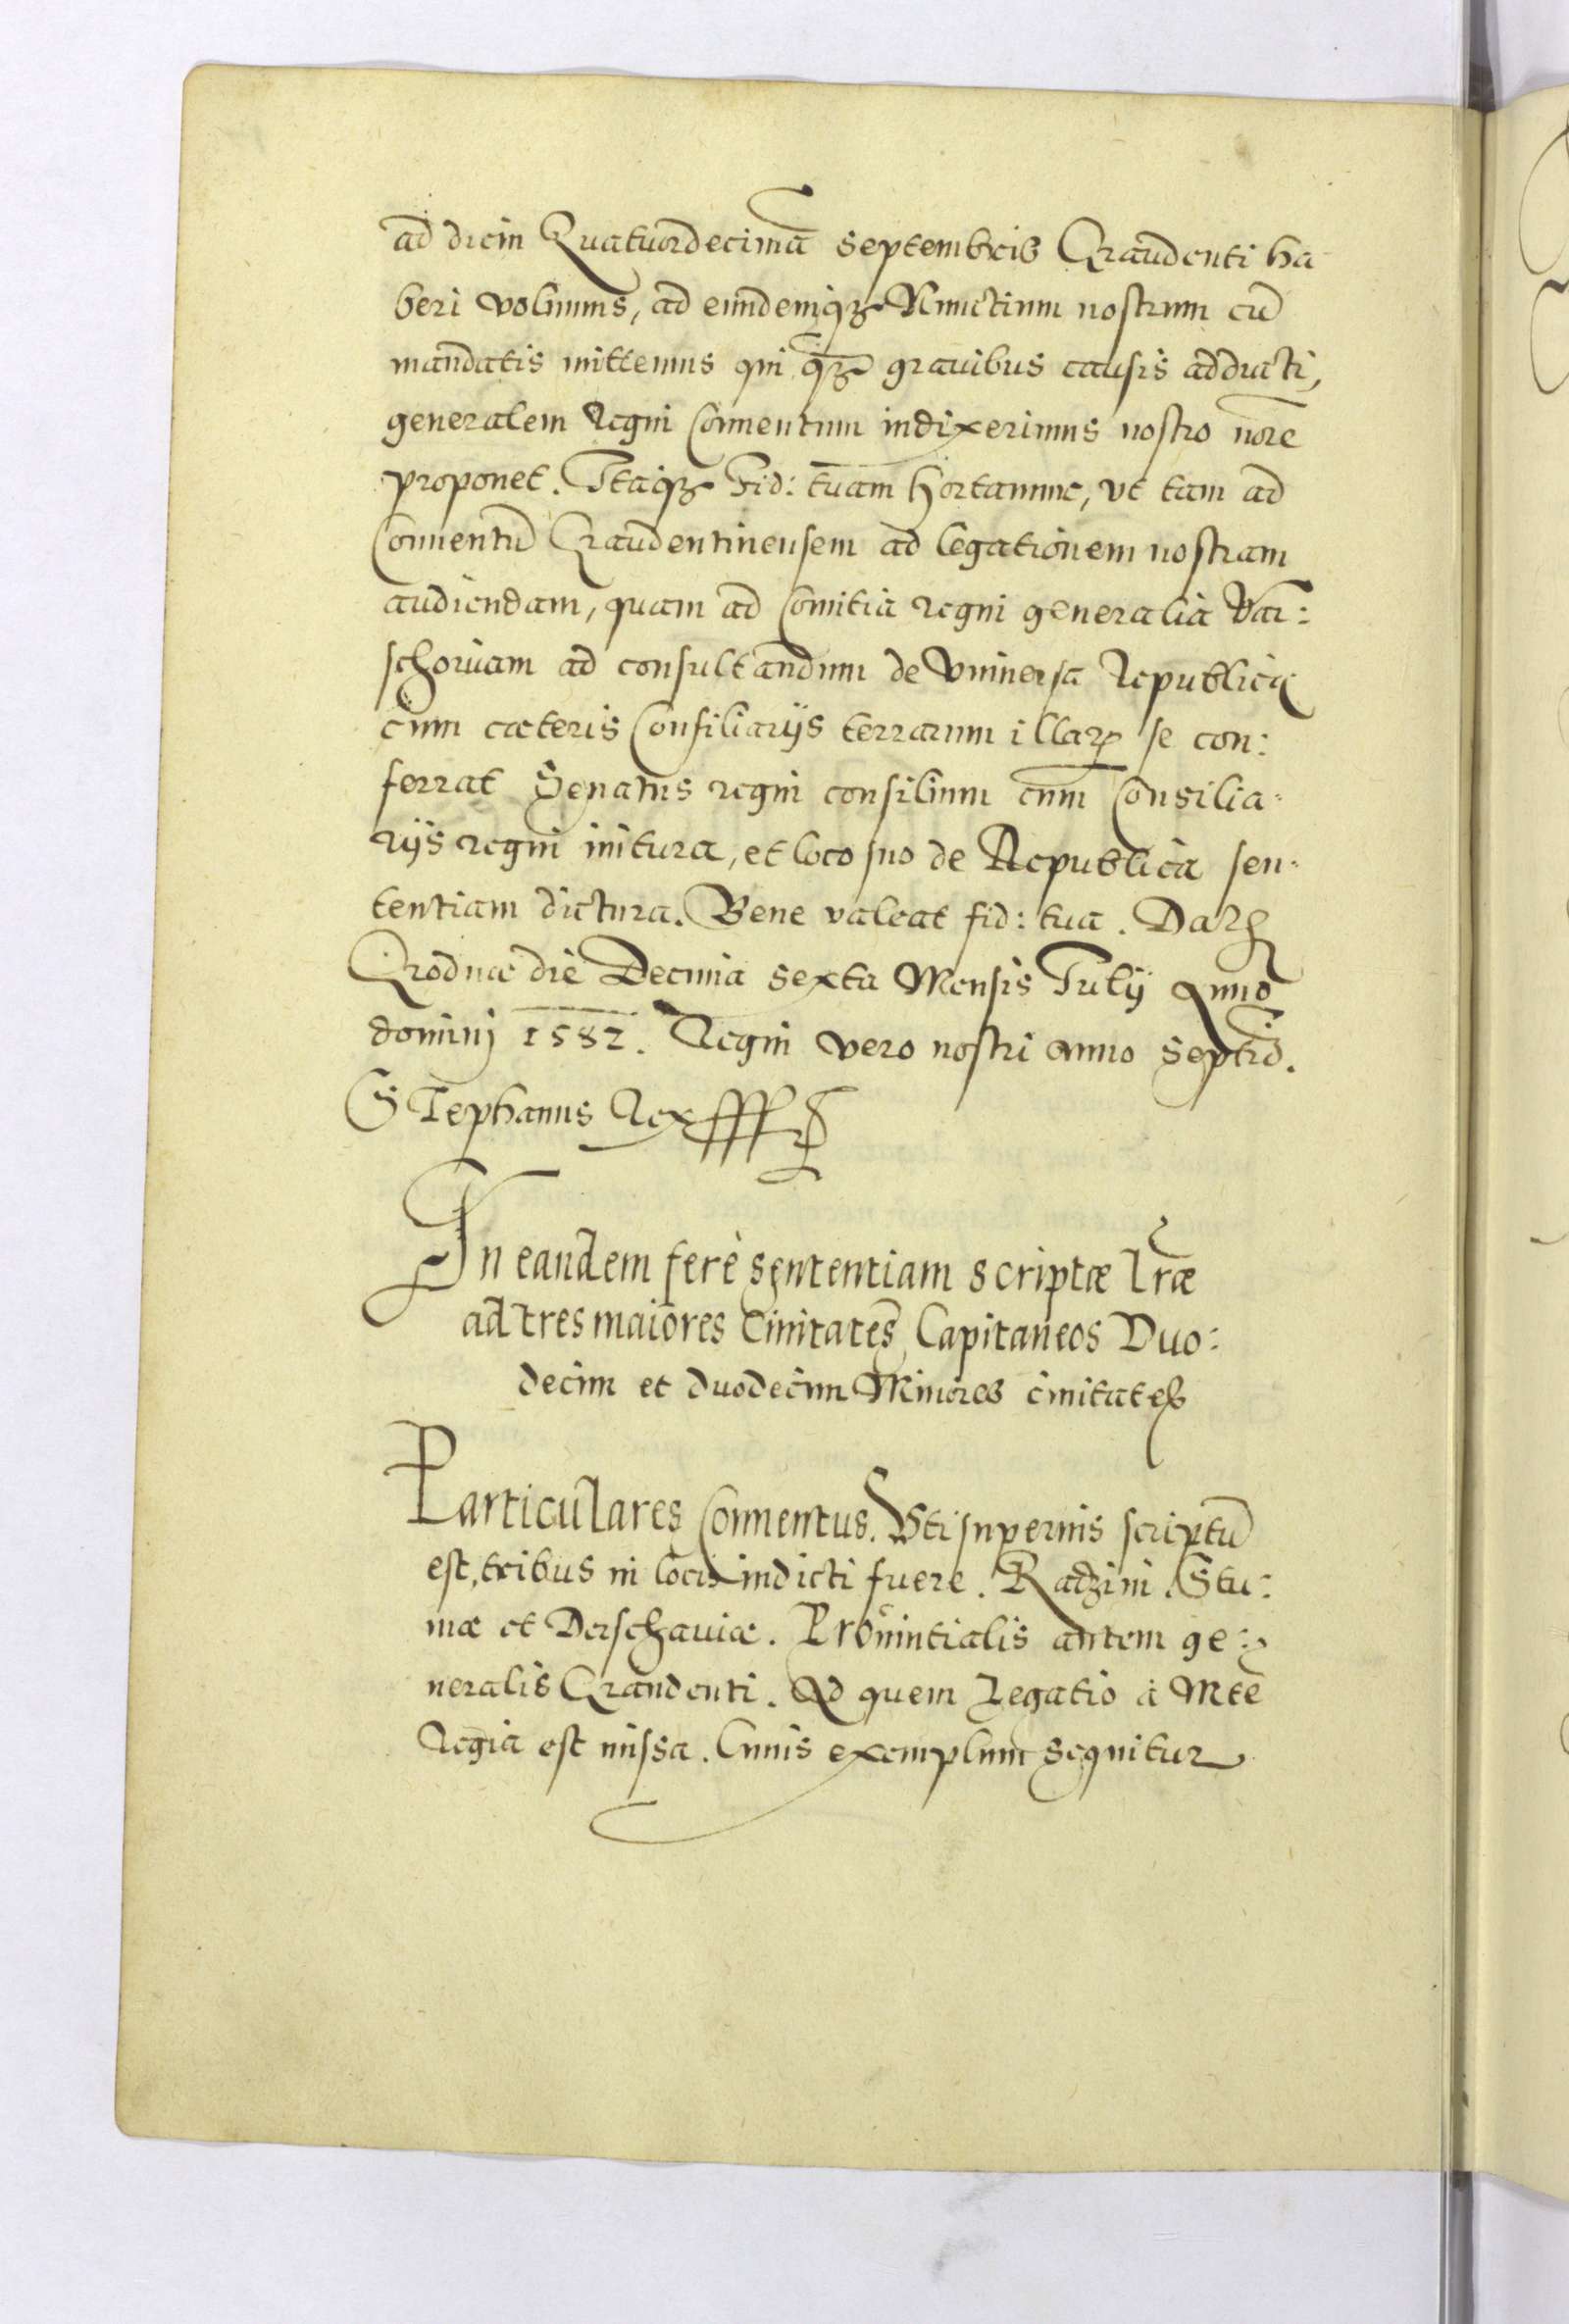 ad diem Quatuordecimā Septembris Graudenti ha
beri volumus, ad eundemq̃ꝫ Nunctium nostrum cū
mandatis mittemus qui q̃ꝫ grauibus causis adducti,
generalem Regni Conuentum indixerimus nostro nōie
proponet. Itaqꝫ Fid: tuam hortamur, vt tam ad
Conuentū Graudentinensem ad legationem nostram
audiendam, quam ad Comitia regni generalia Var:
schoviam ad consultandum de Vniuersa Republica
cum cæteris Consiliarijs terrarum illarꝝ se con:
ferrat Senatus regni consilium cum Consilia:
rijs regni initura, et loco suo de Republica sen:
tentiam dictura. Bene valeat fid: tua. Datꝫ
Grodnæ die Decima sexta Mensis Julij Anno
dominj 1582. Regni vero nostri anno Septiō.
STephanus Rex
In eandem ferè sententiam scriptæ lr̄æ
ad tres maiores Ciuitates, Capitaneos Duo:
decim et duodecim Minores ciuitates
Particulares Conuentus. Vti superius scriptū
est, tribus in locis indicti fuere. Radzini. Stu:
mæ et Derschauiæ. Prouintialis autem ge:
neralis Graudenti. Ad quem Legatio à Mte
Regia est missa. Cuius exemplum sequitur